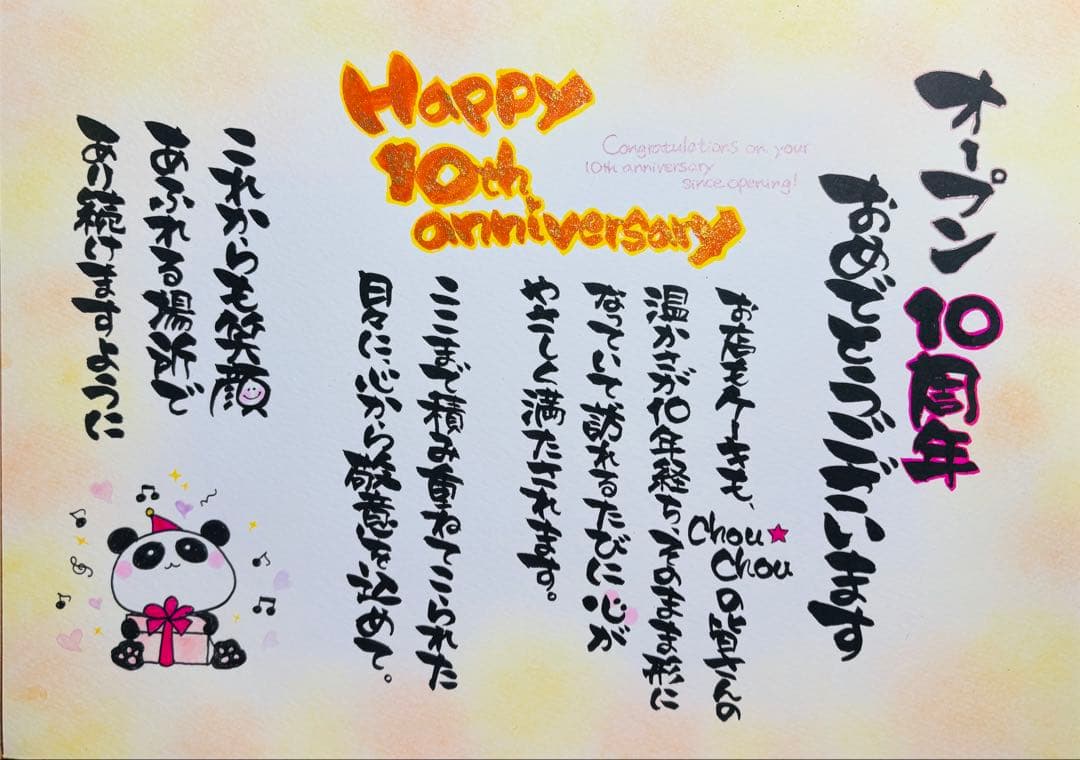 オープン10周年
おめでとうございます
Happy
10th
anniversary
Congratulations on your
10th anniversary
since opening!
お店もケーキも、Chou★Chouの皆さんの
温かさが10年経ち、そのまま形に
なっていて訪れるたびに心が
やさしく満たされます。
ここまで積み重ねてこられた
日々に、心から敬意を込めて。
これからも笑顔
あふれる場所で
あり続けますように